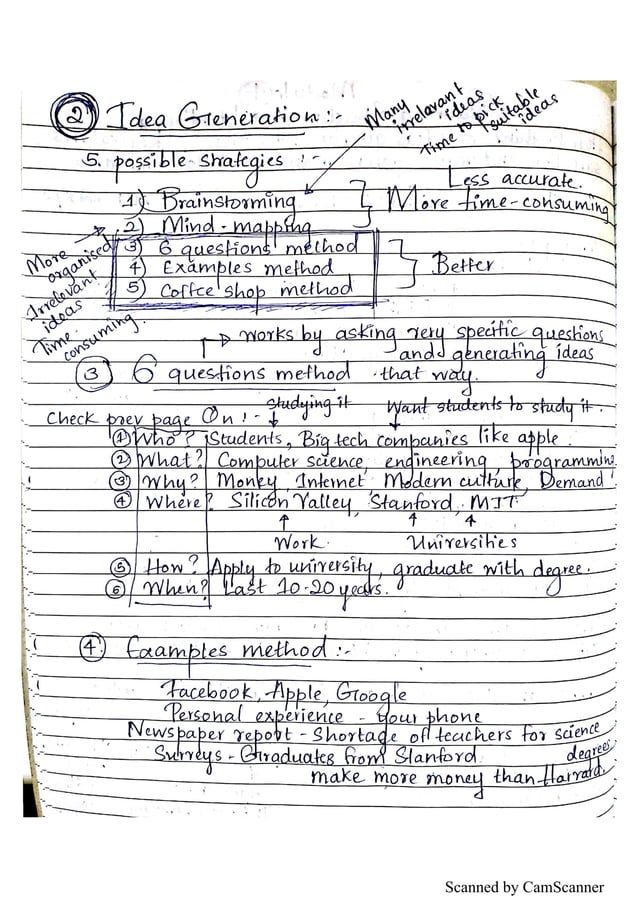 ② Idea Generation :-
Many irrelavant ideas
Time to pick suitable ideas
5 possible strategies :-
1) Brainstorming
2) Mind-mapping
Less accurate.
More time-consuming
3) 6 questions method
4) Examples method
5) Coffee shop method
Better
More organised
Irrelevant ideas
Time consuming.
→ works by asking very specific questions
and generating ideas
③ 6 questions method that way.
Check prev page On :- studying it Want students to study it.
① Who? Students, Big tech companies like apple.
② What? Computer science, engineering, programming
③ Why? Money, Internet, Modern culture, Demand
④ Where? Silicon Valley, Stanford, MIT
Work Universities
⑤ How? Apply to university, graduate with degree.
⑥ When? Last 10-20 years.
④ Examples method :-
Facebook, Apple, Google
Personal experience - Your phone
Newspaper report - Shortage of teachers for science
degrees
Surveys - Graduates from Stanford
make more money than Harvard.
Scanned by CamScanner